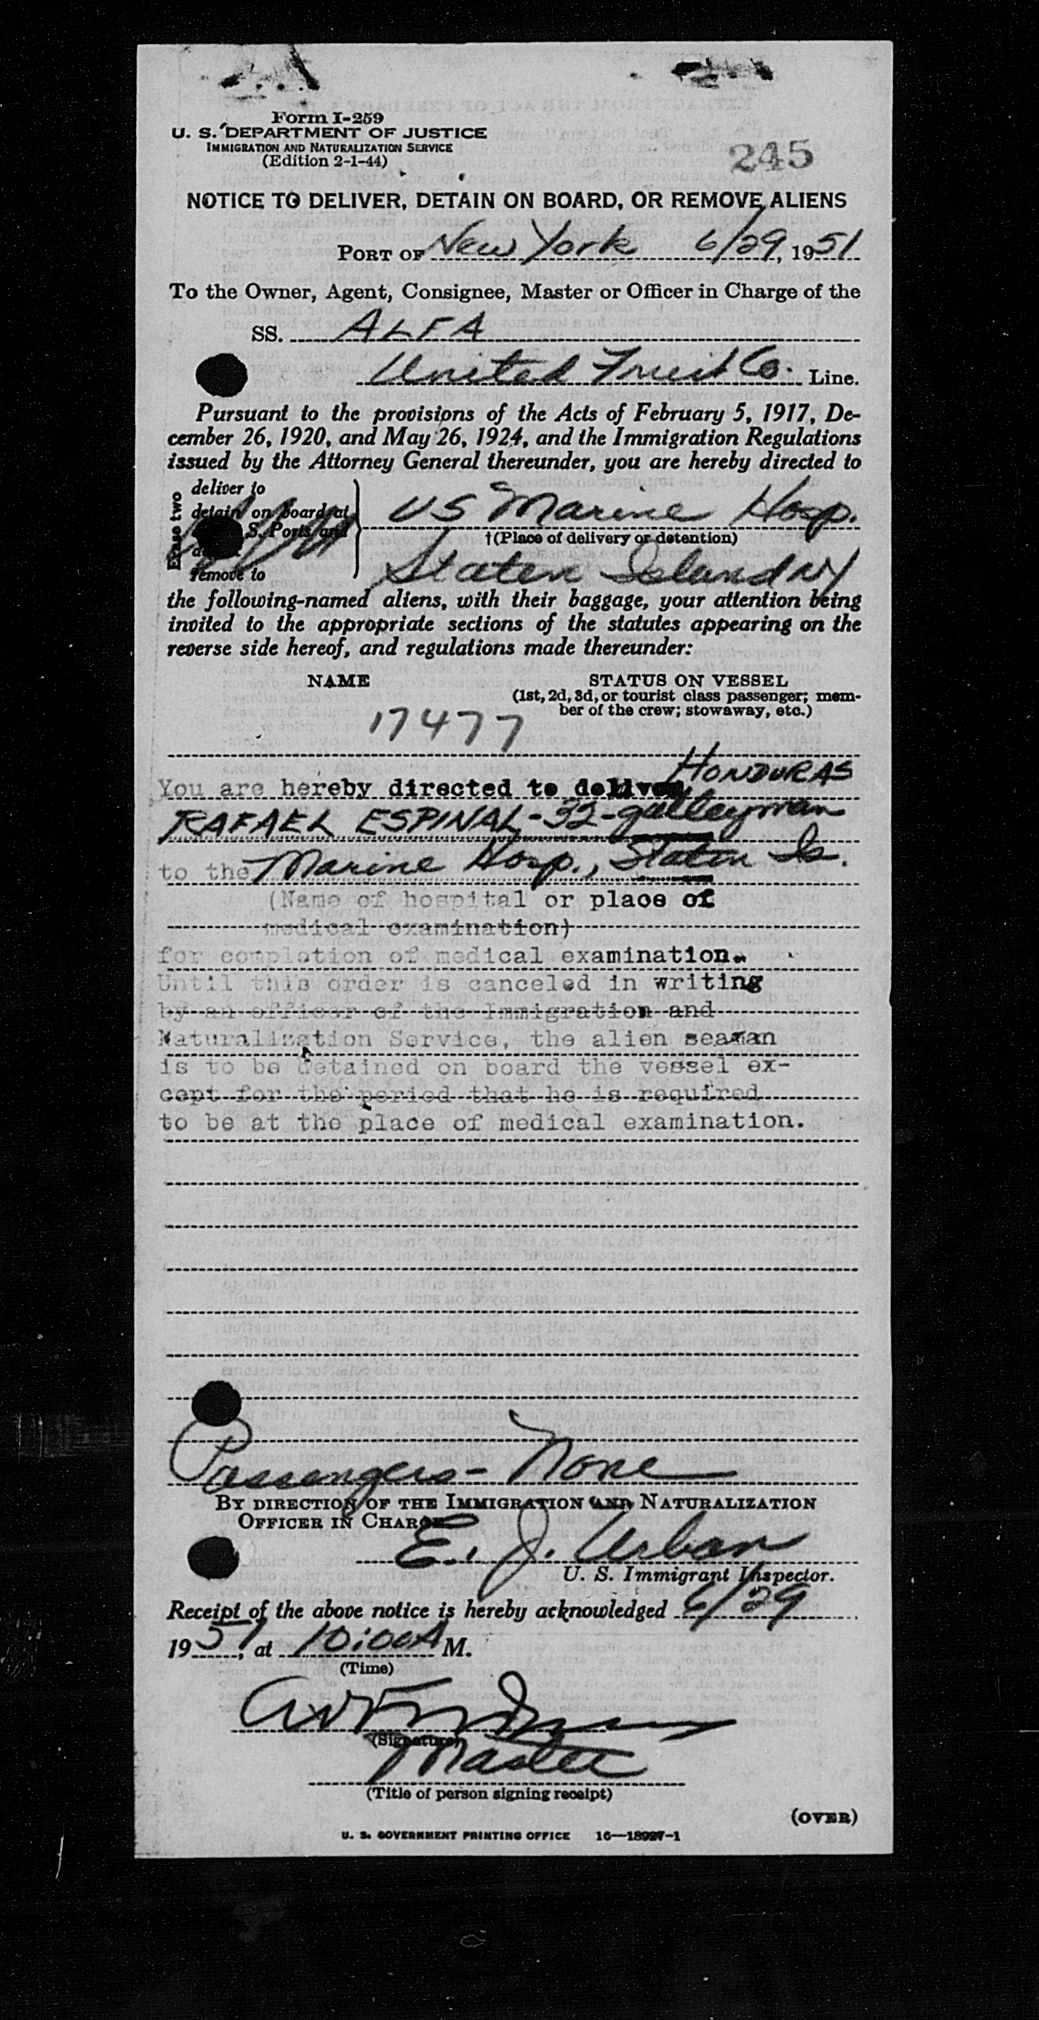 Form I-259
U. S. DEPARTMENT OF JUSTICE
IMMIGRATION AND NATURALIZATION SERVICE
(Edition 2-1-44)
245
NOTICE TO DELIVER, DETAIN ON BOARD, OR REMOVE ALIENS
PORT OF New York 6/29, 1951
To the Owner, Agent, Consignee, Master or Officer in Charge of the
SS. ALFA
United Fruit Co. Line.
Pursuant to the provisions of the Acts of February 5, 1917, De-
cember 26, 1920, and May 26, 1924, and the Immigration Regulations
issued by the Attorney General thereunder, you are hereby directed to
Erase two
deliver to
detain on board at
S. Ports and
remove to
US Marine Hosp.
†(Place of delivery or detention)
Staten Island NY
the following-named aliens, with their baggage, your attention being
invited to the appropriate sections of the statutes appearing on the
reverse side hereof, and regulations made thereunder:
NAME STATUS ON VESSEL
(1st, 2d, 3d, or tourist class passenger; mem-
ber of the crew; stowaway, etc.)
17477
HONDURAS
You are hereby directed to deliver
RAFAEL ESPINAL-32-galleyman
to the Marine Hosp., Staten Is.
(Name of hospital or place of
medical examination)
for completion of medical examination.
Until this order is canceled in writing
by an officer of the Immigration and
Naturalization Service, the alien seaman
is to be detained on board the vessel ex-
cept for the period that he is required
to be at the place of medical examination.
Passengers - None
BY DIRECTION OF THE IMMIGRATION AND NATURALIZATION
OFFICER IN CHARGE
E. J. Urban
U. S. Immigrant Inspector.
Receipt of the above notice is hereby acknowledged 6/29
1951, at 10:00A M.
(Time)
(Signature)
Master
(Title of person signing receipt)
(OVER)
U. S. GOVERNMENT PRINTING OFFICE 16—18927-1